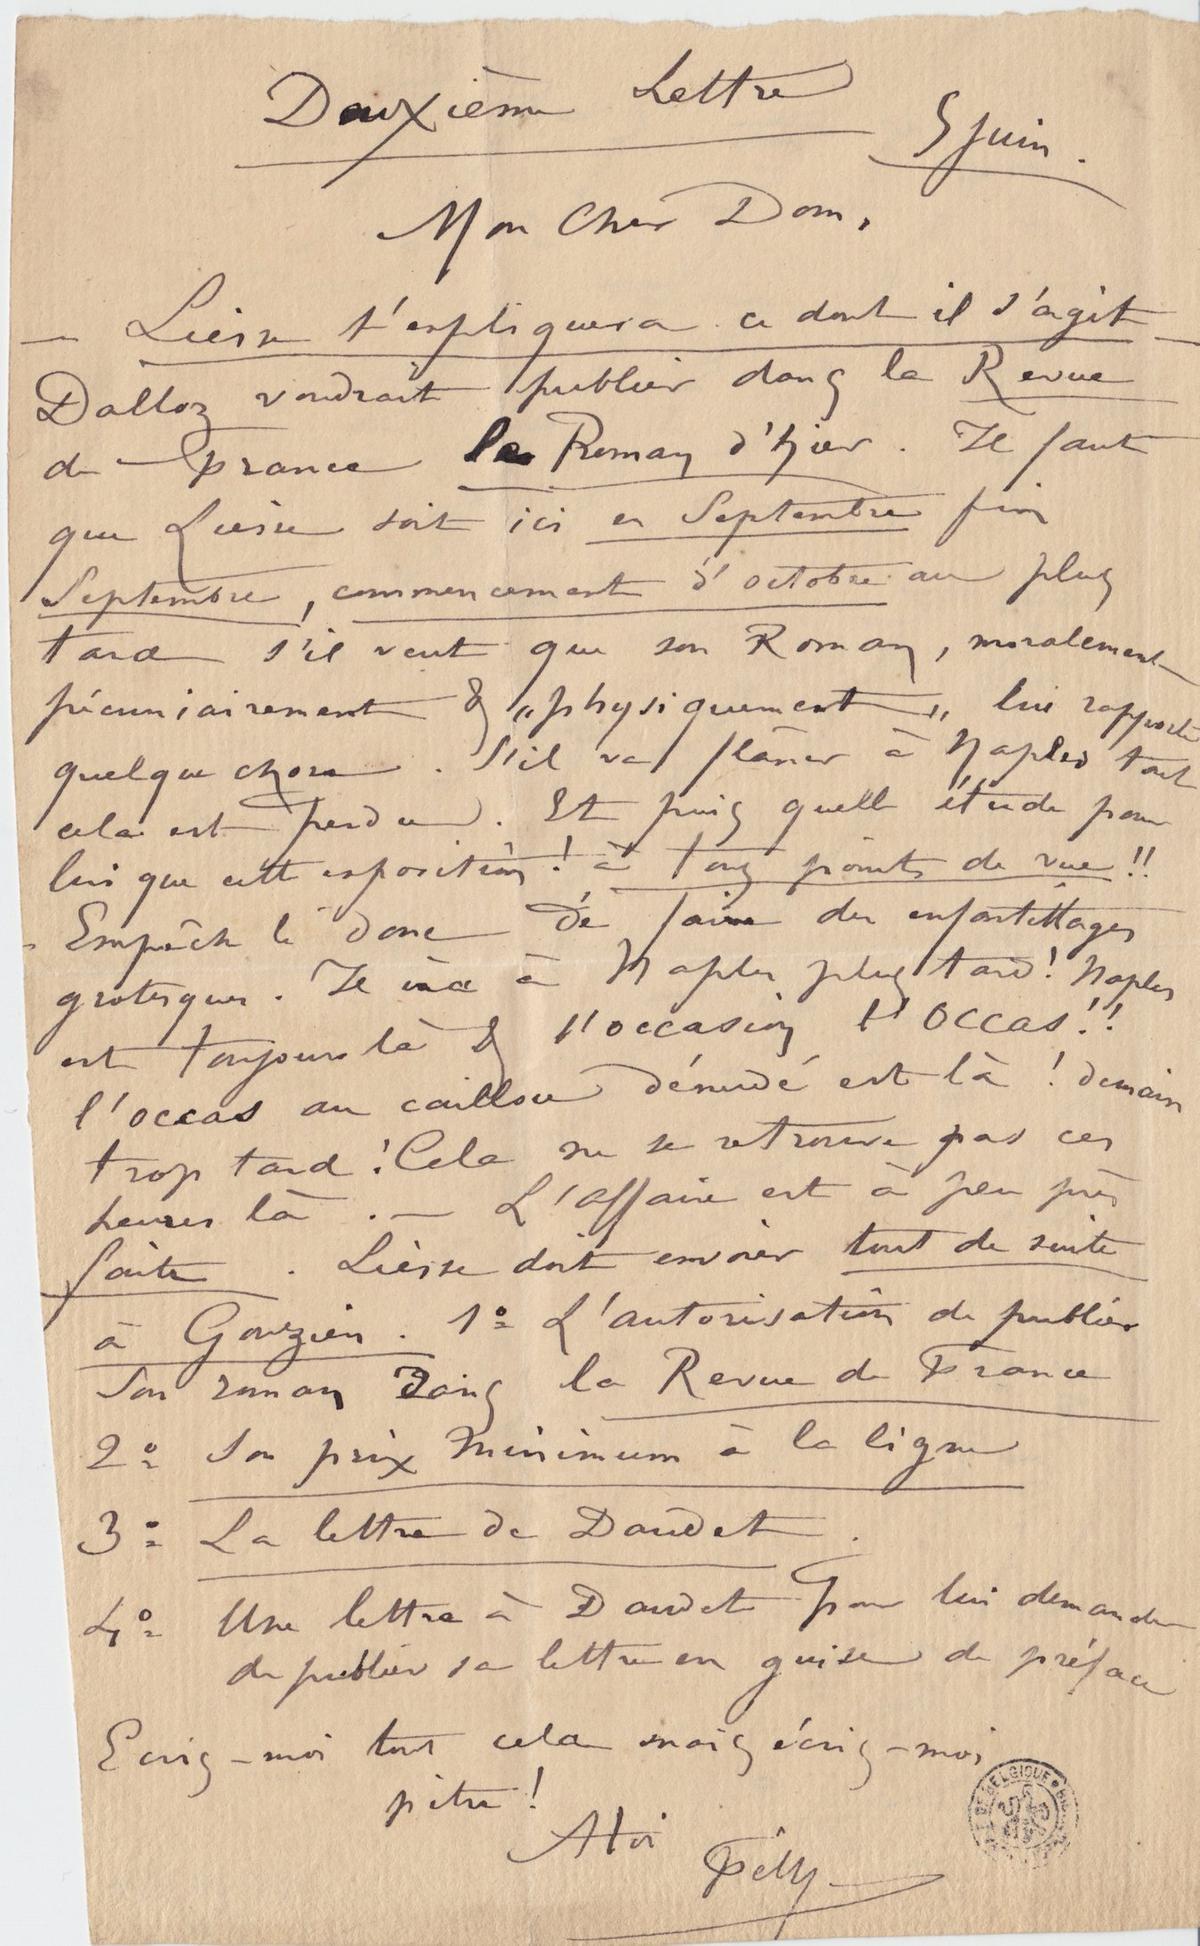 Deuxième Lettre
5 Juin.
Mon Cher Dom,
— Liesse t'expliquera ce dont il s'agit —
Dalloz voudrait publier dans la Revue
de France le Roman d'hier. Il faut
que Liesse soit ici en Septembre fin
Septembre, commencement d'octobre au plus
tard s'il veut que son Roman, moralement
pécuniairement & "physiquement" lui rapporte
quelque chose. S'il va flâner à Naples tout
cela est perdu. Et puis quelle étude pour
lui que cette exposition! à tous points de vue!!
- Empêche le donc de faire des enfantillages
grotesques. Il ira à Naples plus tard! Naples
est toujours là & l'occasion l'occas!!
l'occas au caillou dénudé est là! demain
trop tard! Cela ne se retrouve pas ces
heures là. — L'affaire est à peu près
faite. Liesse doit envoier tout de suite
à Gouzien. 1º L'autorisation de publier
son roman dans la Revue de France
2º Son prix minimum à la ligne
3º La lettre de Daudet.
4º Une lettre à Daudet pour lui demander
de publier sa lettre en guise de préface
Ecris-moi tout cela mais écris-moi
pitre!
A toi
Fély
DE BELGIQUE